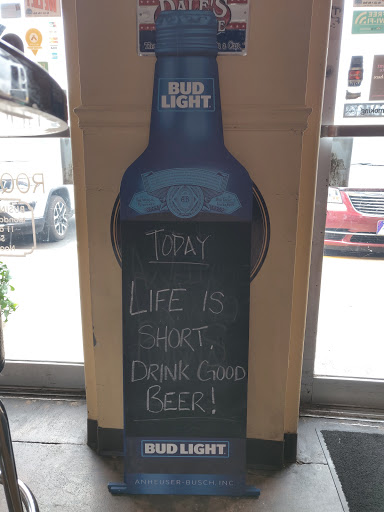 DALE'S
BUD
LIGHT
TODAY
LIFE IS
SHORT,
DRINK GOOD
BEER!
BUD LIGHT
ANHEUSER-BUSCH, INC.